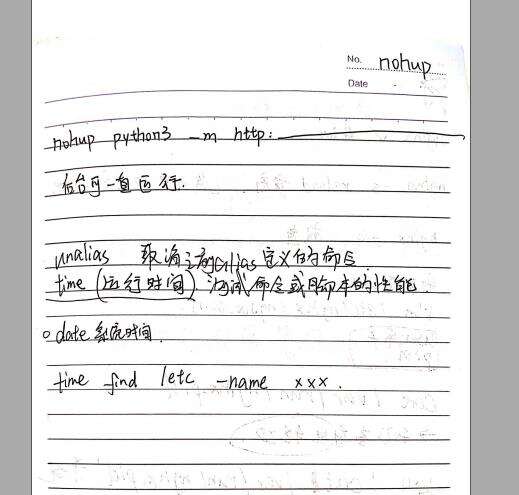 No. nohup
Date
nohup python3 -m http:
后台可一直运行.
unalias 取消之前alias定义的命令
time (运行时间). 测试命令或脚本的性能
date 系统时间.
time find /etc -name xxx.